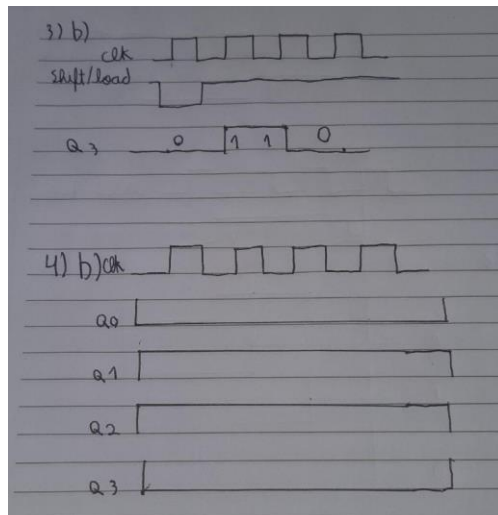 3) b)
clk
shift/load
Q3 0 1 1 0
4) b) clk
Q0
Q1
Q2
Q3